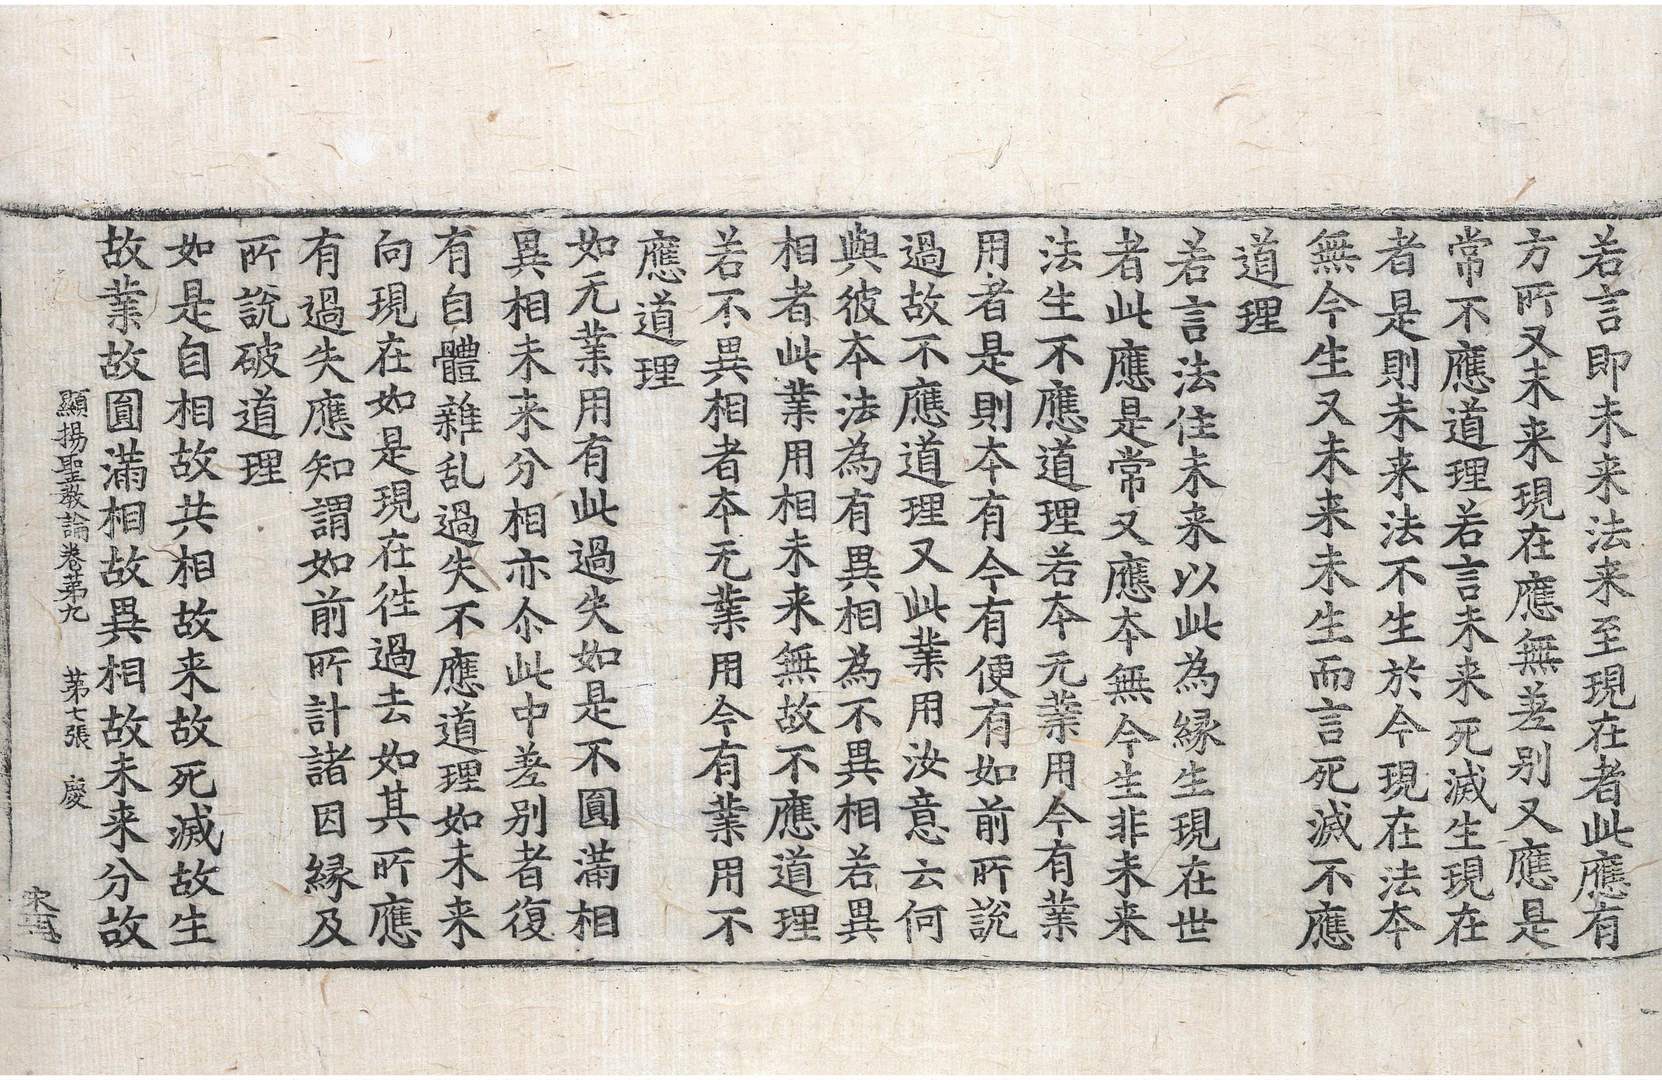 若言即未来法来至現在者此應有
方所又未来現在應無差别又應是
常不應道理若言未来死滅生現在
者是則未来法不生於今現在法本
無今生又未来未生而言死滅不應
道理
若言法住未来以此為縁生現在世
者此應是常又應本無今生非未来
法生不應道理若本无業用今有業
用者是則本有今有便有如前所說
過故不應道理又此業用汝意云何
與彼本法為有異相為不異相若異
相者此業用相未来無故不應道理
若不異相者本无業用今有業用不
應道理
如无業用有此過失如是不圓滿相
異相未来分相亦尒此中差别者復
有自體雜乱過失不應道理如未来
向現在如是現在徃過去如其所應
有過失應知謂如前所計諸因縁及
所說破道理
如是自相故共相故来故死滅故生
故業故圓滿相故異相故未来分故
顯揚聖教論卷苐九 苐七張 慶